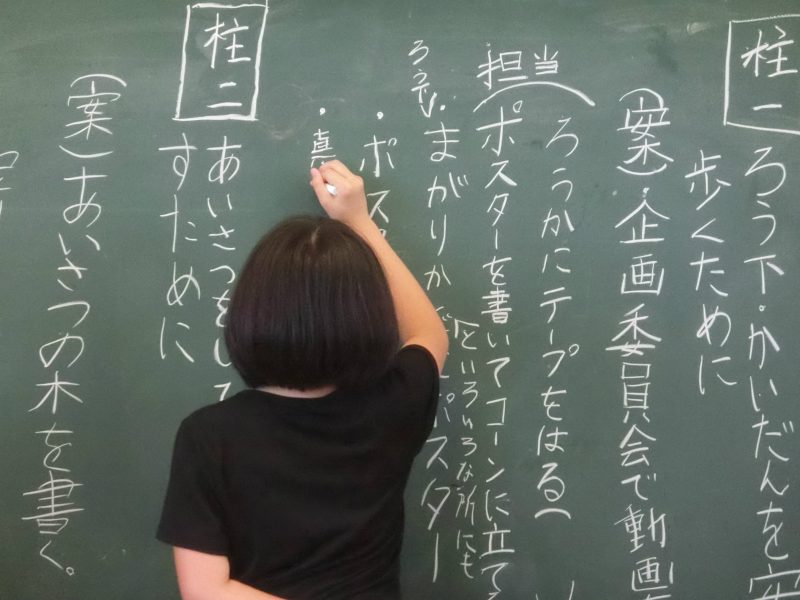 柱一
ろう下・かいだんを安
歩くために
(案)・企画委員会で動画
ろうかにテープをはる(
担当
(ポスターを書いてコーンに立てる
といろいろな所にも
ろうか
・まがりかど ポスター
・ポスタ
・真
柱二
あいさつをして
すために
(案)あいさつの木を書く。